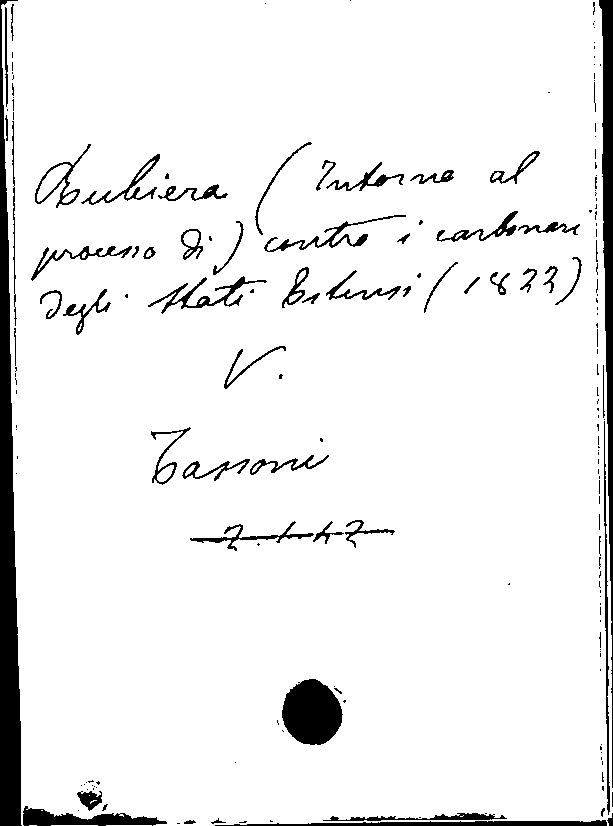 Rubiera (Intorno al
processo di) contro i carbonari
degli Stati Estensi (1822)
V.
Tassoni